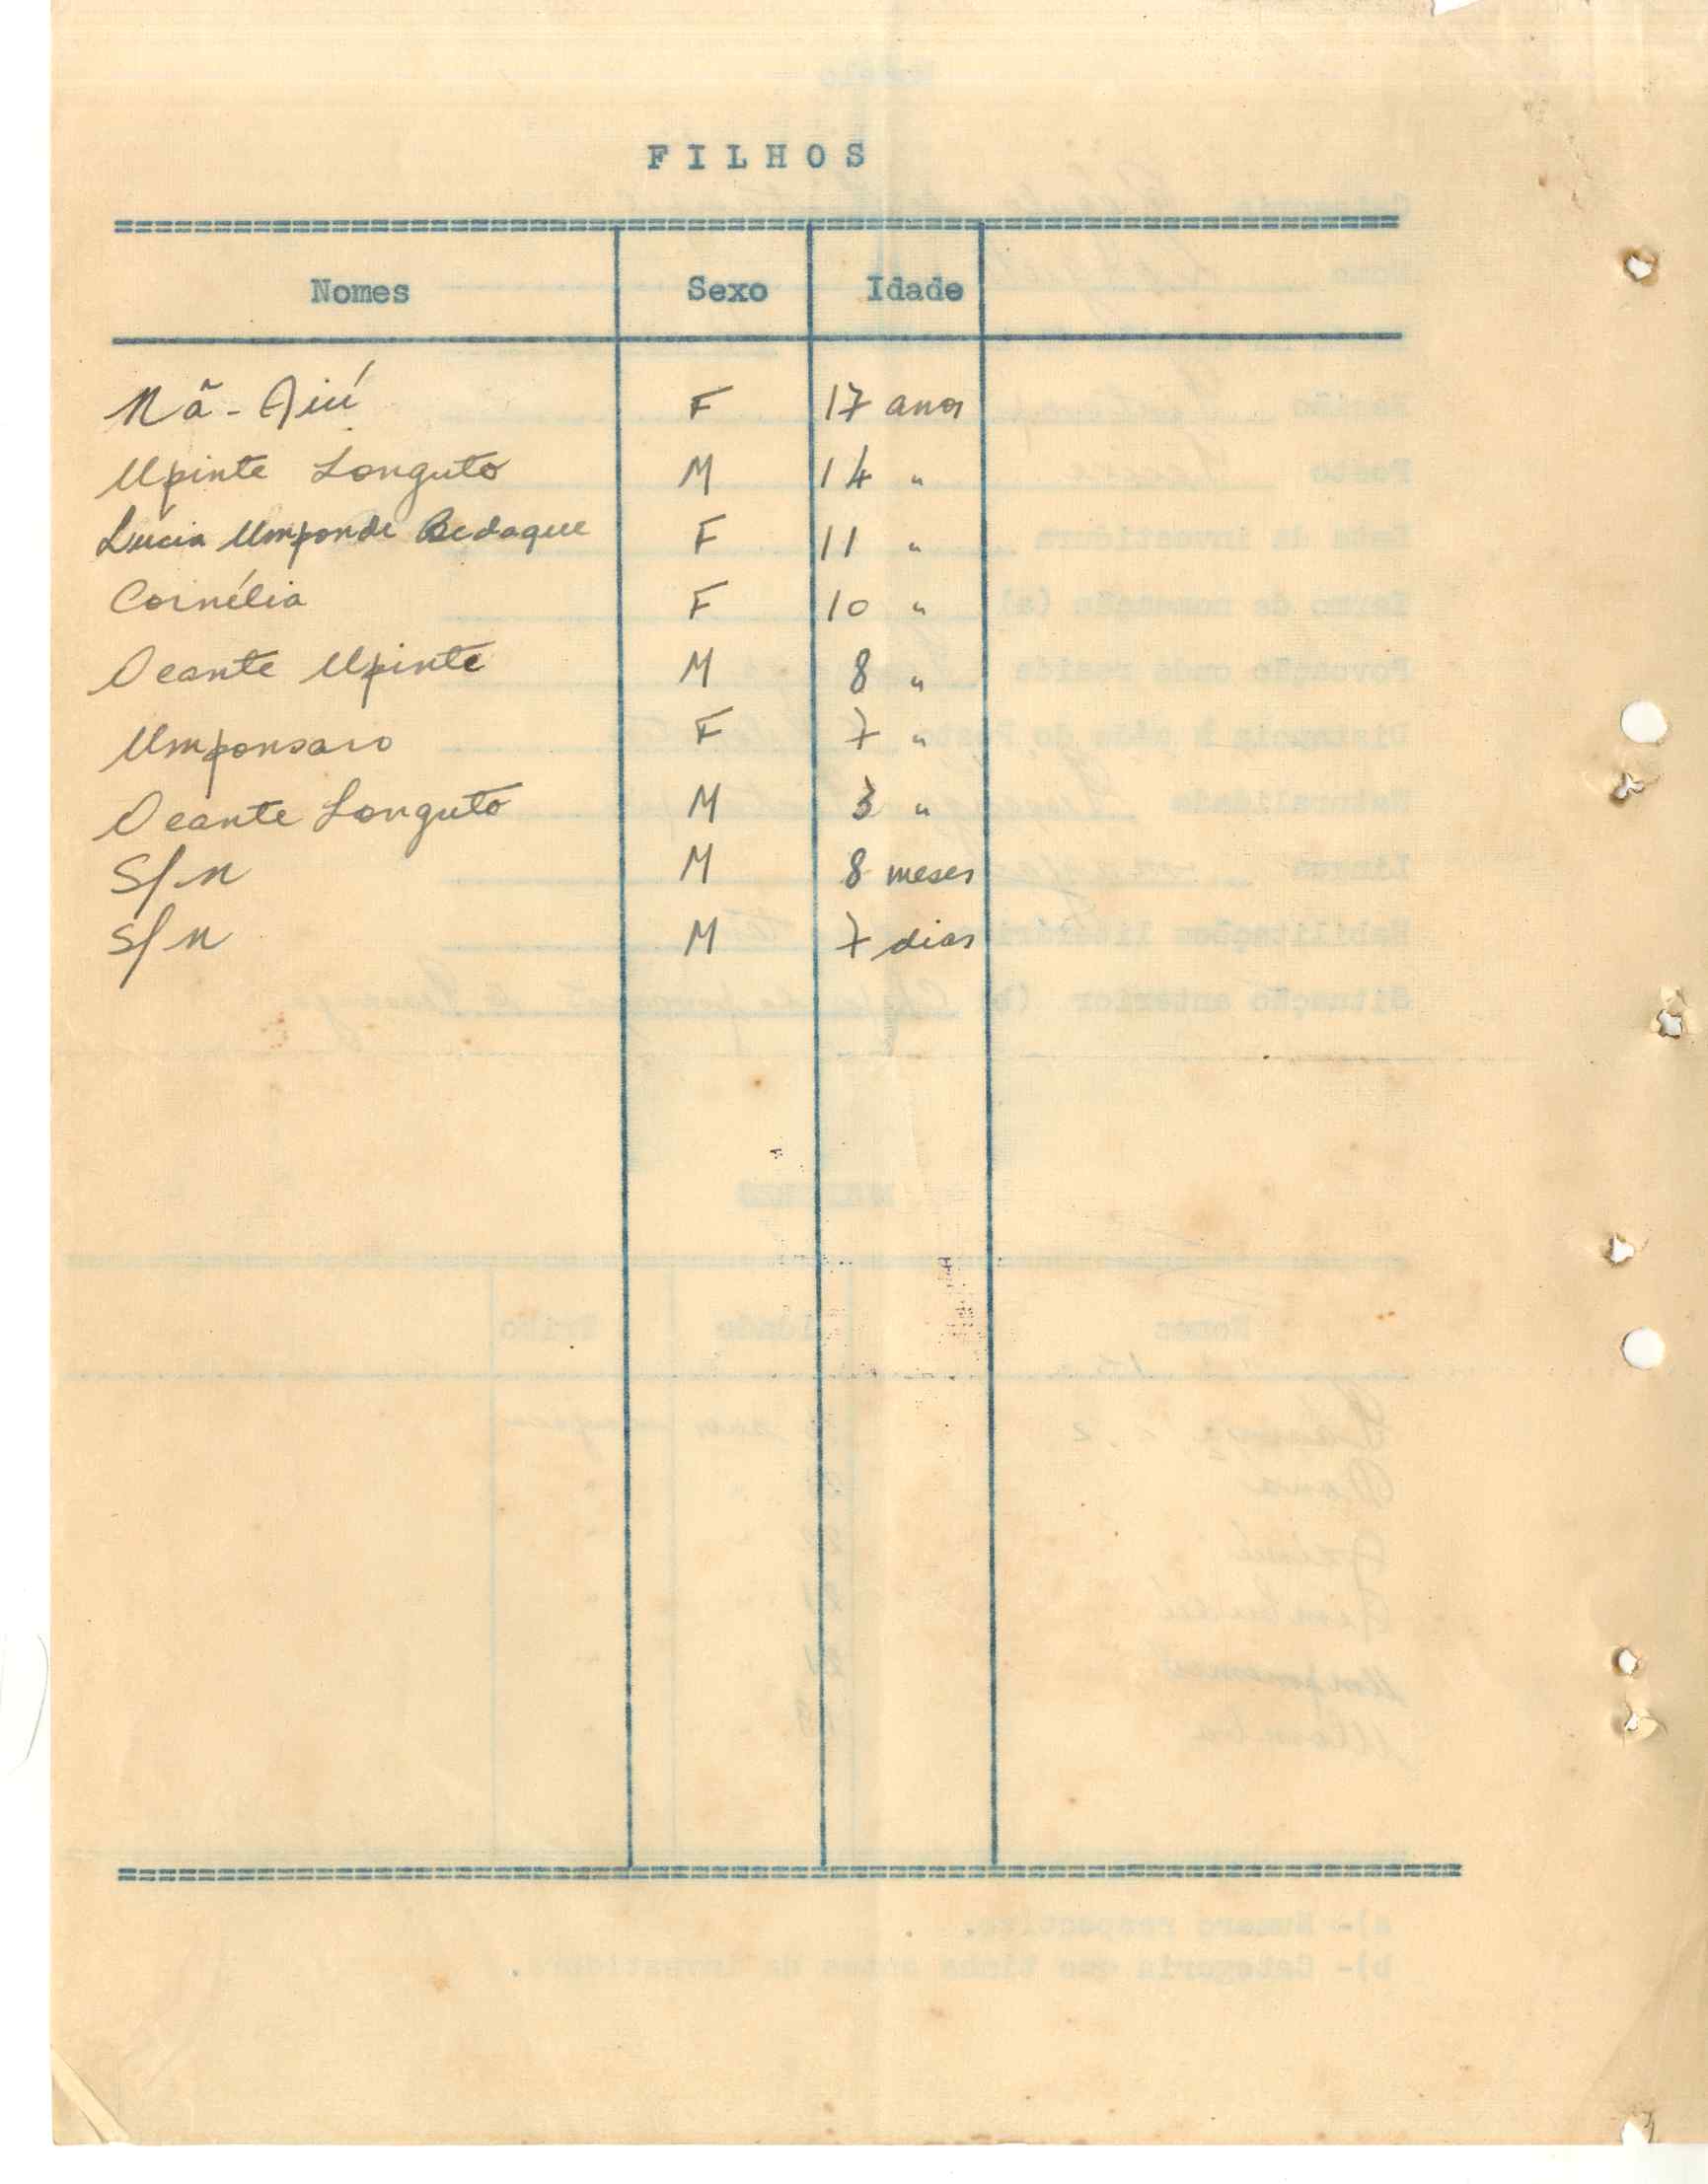 FILHOS
Nomes Sexo Idade
Nã-Aiú F 17 anos
Upinte Longuto M 14 "
Lúcia Umponde Bedaque F 11 "
Cornélia F 10 "
Ocante Upinte M 8 "
Umponsaro F 7 "
Ocante Longuto M 3 "
S/n M 8 meses
S/n M 7 dias